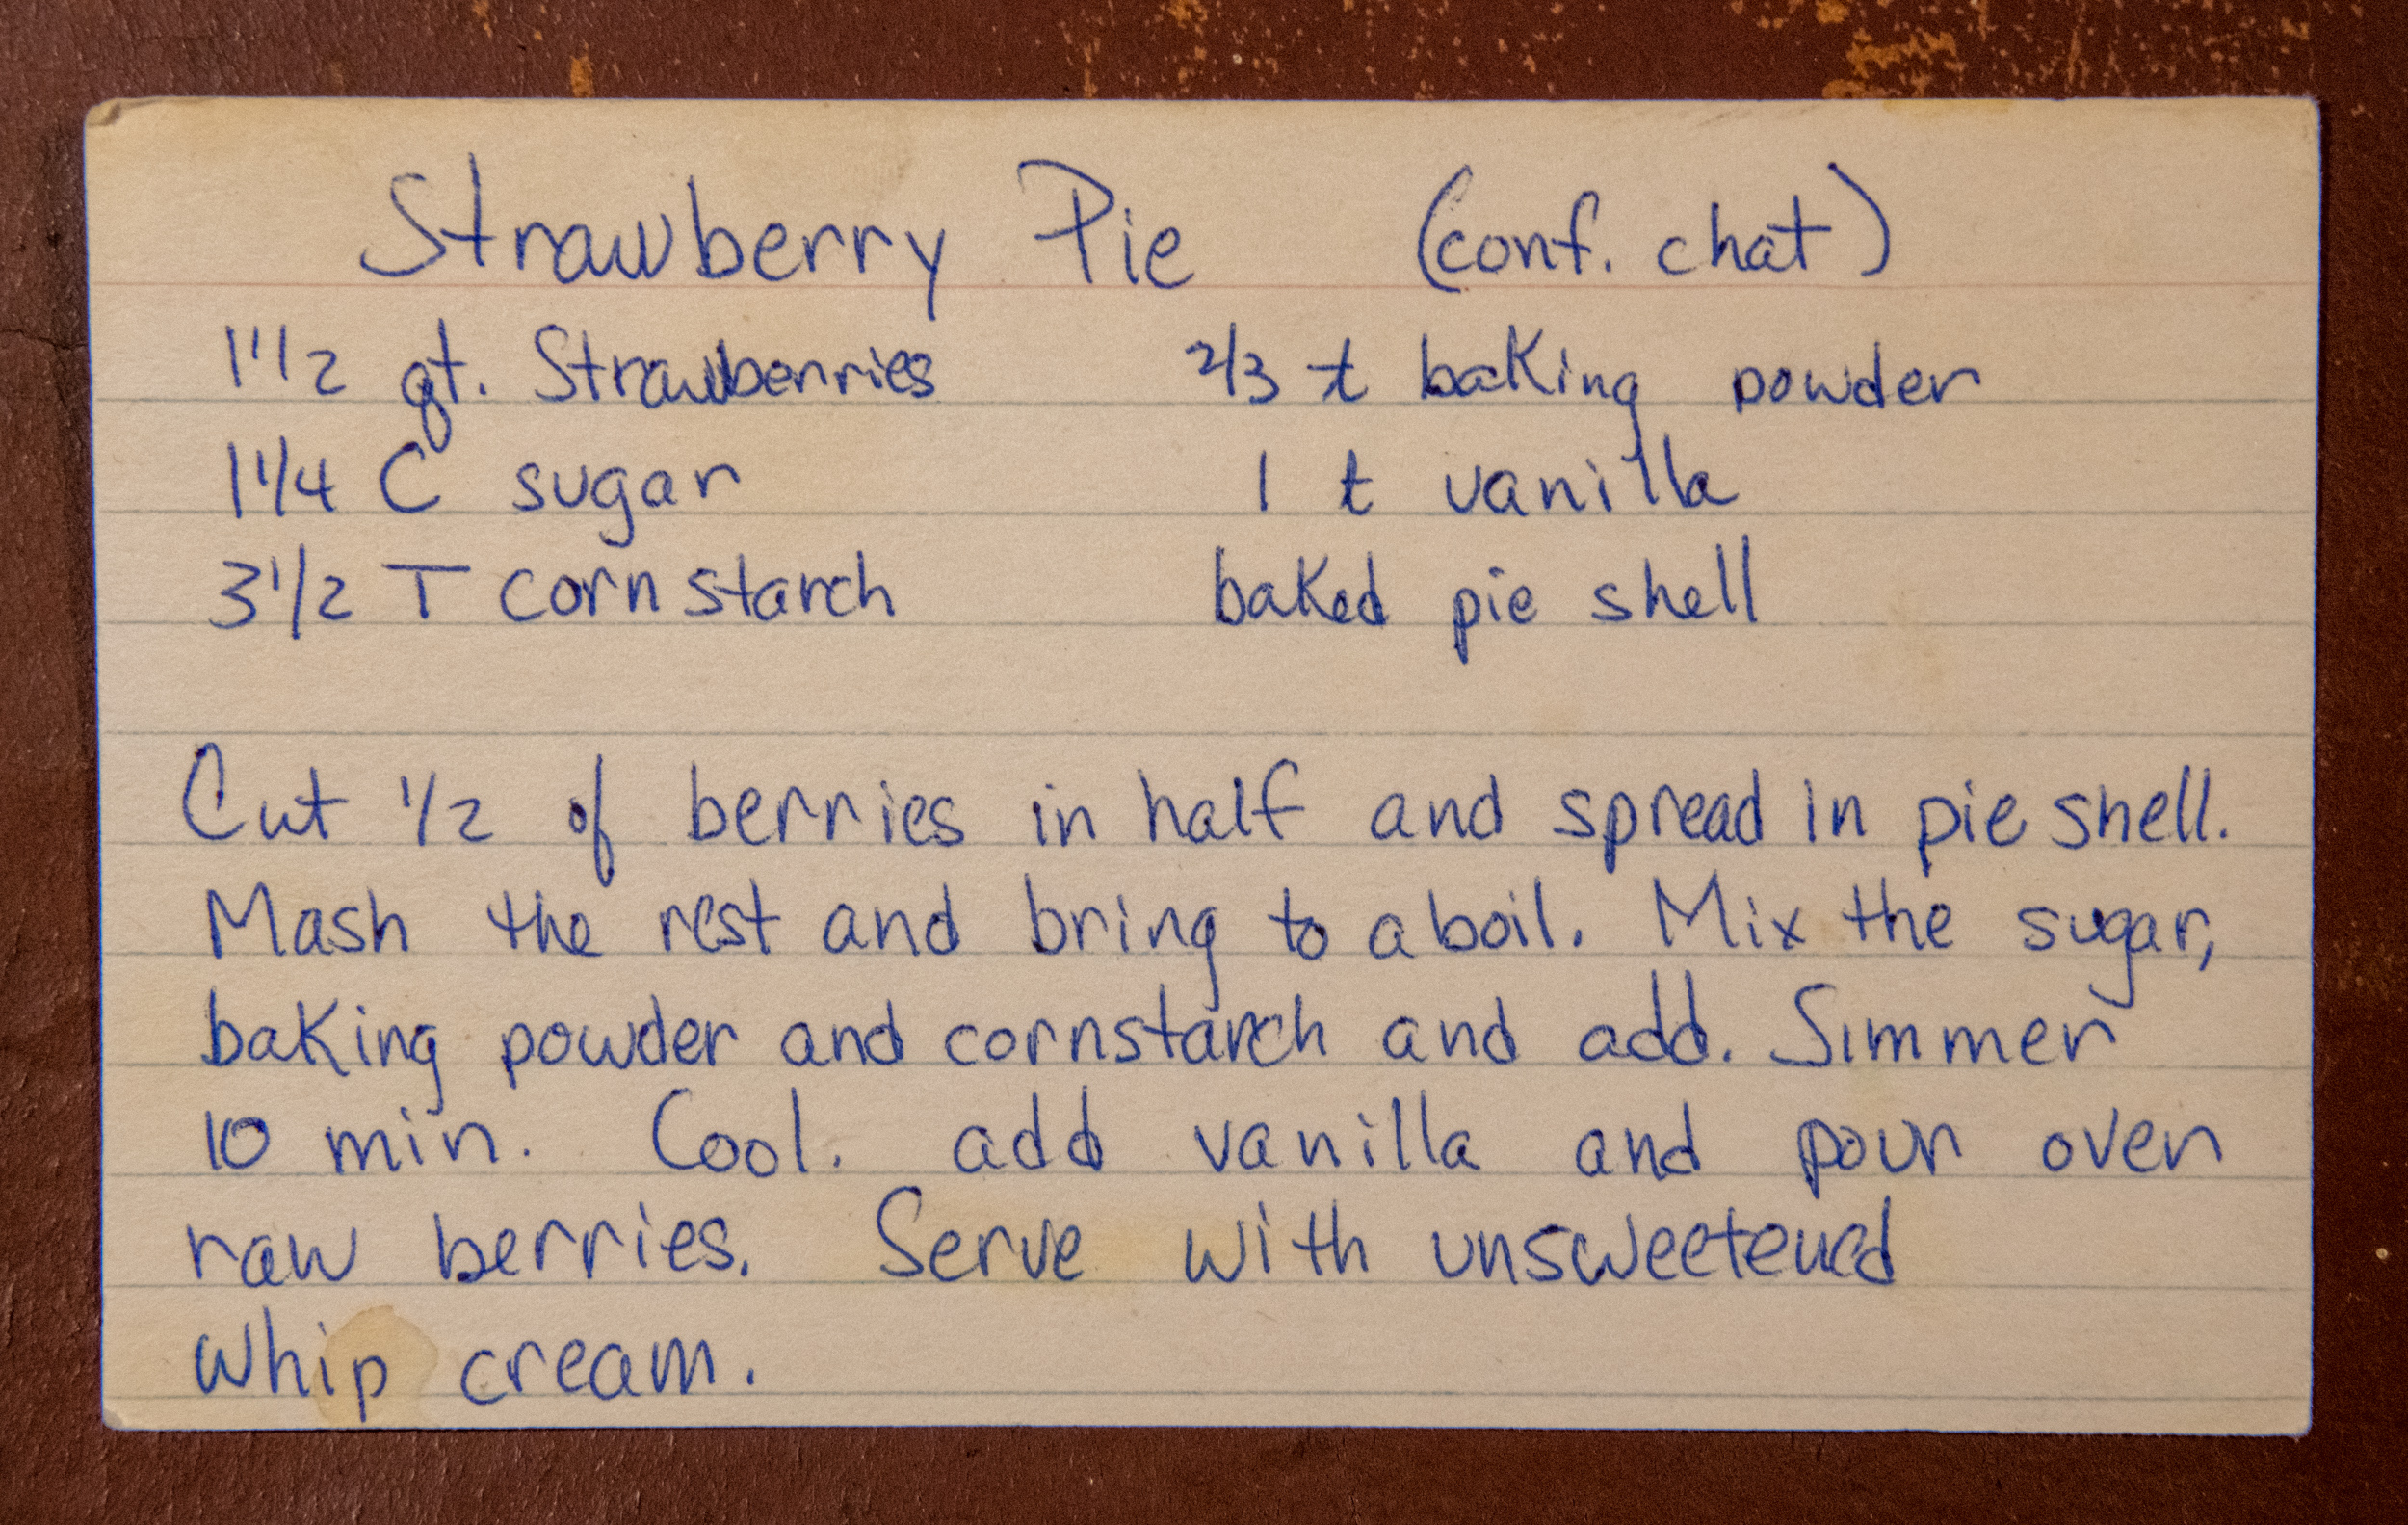 Strawberry Pie (conf. chat)
1 1/2 qt. Strawberries 2/3 t baking powder
1 1/4 C sugar 1 t vanilla
3 1/2 T cornstarch baked pie shell
Cut 1/2 of berries in half and spread in pie shell.
Mash the rest and bring to a boil. Mix the sugar,
baking powder and cornstarch and add. Simmer
10 min. Cool. add vanilla and pour over
raw berries. Serve with unsweetened
whip cream.